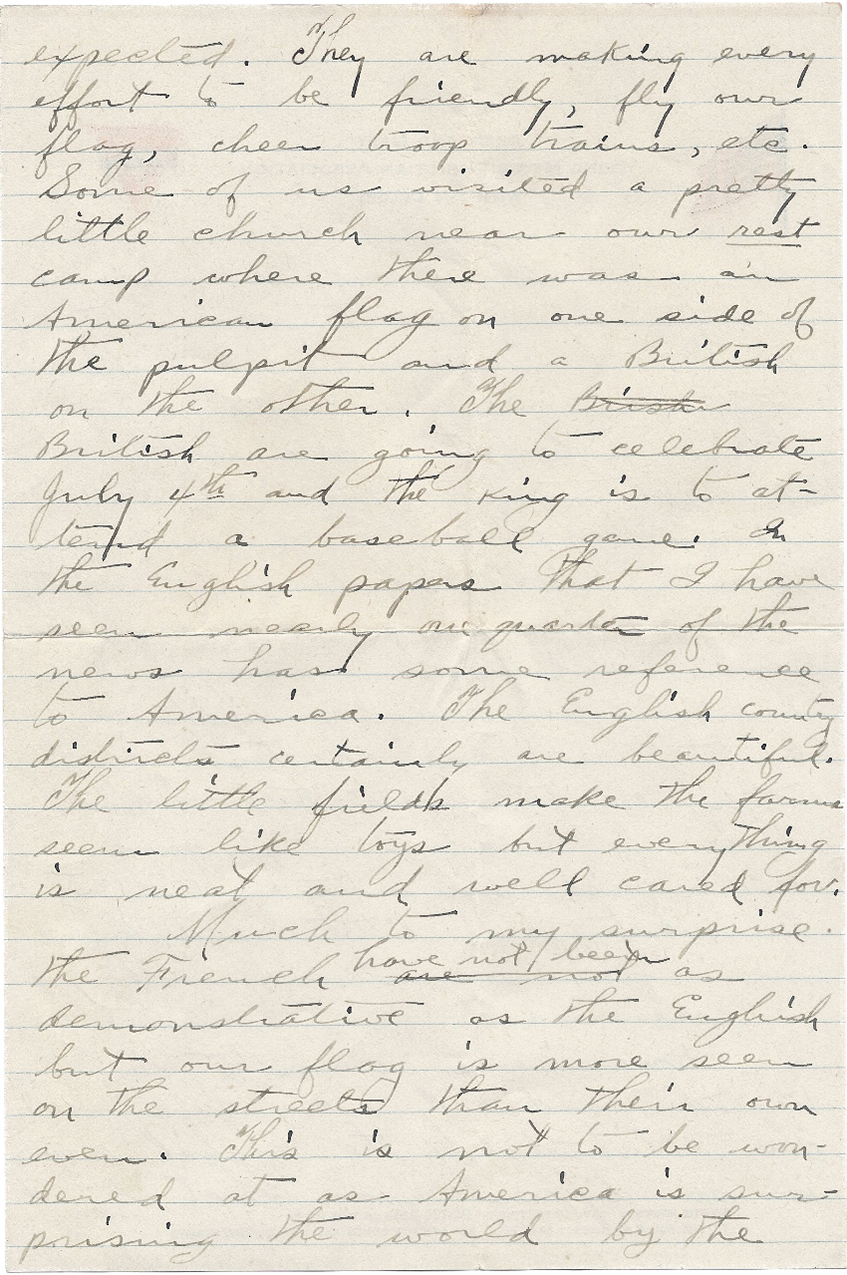 expected. They are making every
effort to be friendly, fly our
flag, cheer troop trains, etc.
Some of us visited a pretty
little church near our rest
camp where there was an
American flag on one side of
the pulpit and a British
on the other. The British
British are going to celebrate
July 4th and the King is to at-
tend a baseball game. In
the English papers that I have
seen nearly one quarter of the
news has some reference
to America. The English county
districts certainly are beautiful.
The little fields make the farms
seem like toys but everything
is neat and well cared for.
Much to my surprise.
have not been
the French are not as
demonstrative as the English
but our flag is more seen
on the streets than their own
even. This is not to be won-
dered at as America is sur-
prising the world by the